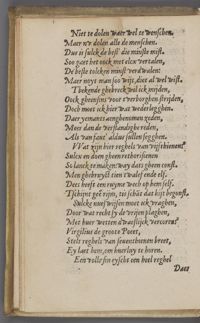 Niet te dolen waer wel te wenschen.
Maer w' dolen alle de menschen.
Dus is hy de best' die minste mist.
Soo gaet het oock met elcx vertalen,
De beste tolcken minst verdwalen:
Maer noyt man soo wijs, diet al wel wist.
T'bekende ghebreck wil ick mijden,
Oock gheensins voor t'verborghen strijden,
Doch moet ick hier wat wederlegghen.
Daer yemants aenghenomen reden,
Meer dan de verstandighe
Als van faut' aldus sullen segghen.
Wat zijn hier reghels van rijsthienen?
Sulcx en doen gheen rethorisienen
So lanck te maken: waey dats gheen const.
Men ghebruyckt tien t'walef ende elf.
Dees heeft een ruyme wech op hem self.
T'schijnt gec rijm, tis schat dat hijt begonst.
Sulcke neuswijsen moet ick vraghen,
Door wat recht sy de reijen plaghen,
Met huer wetten dwaeslijck vercorten?
Virgilius de groote Poeet,
Stelt reghels van seuenthienen breet,
Ey laet hem, om huerluy te horen.
Een volle sin eyscht een heel reghel
Daer